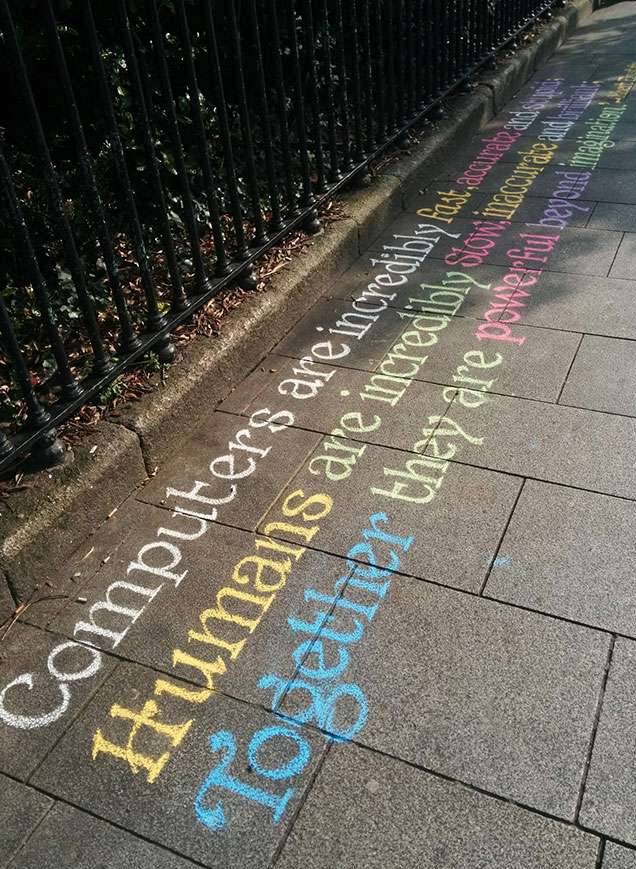 Computers are incredibly fast accurate and stupid;
Humans are incredibly slow, inaccurate and brilliant;
Together they are powerful beyond imagination.